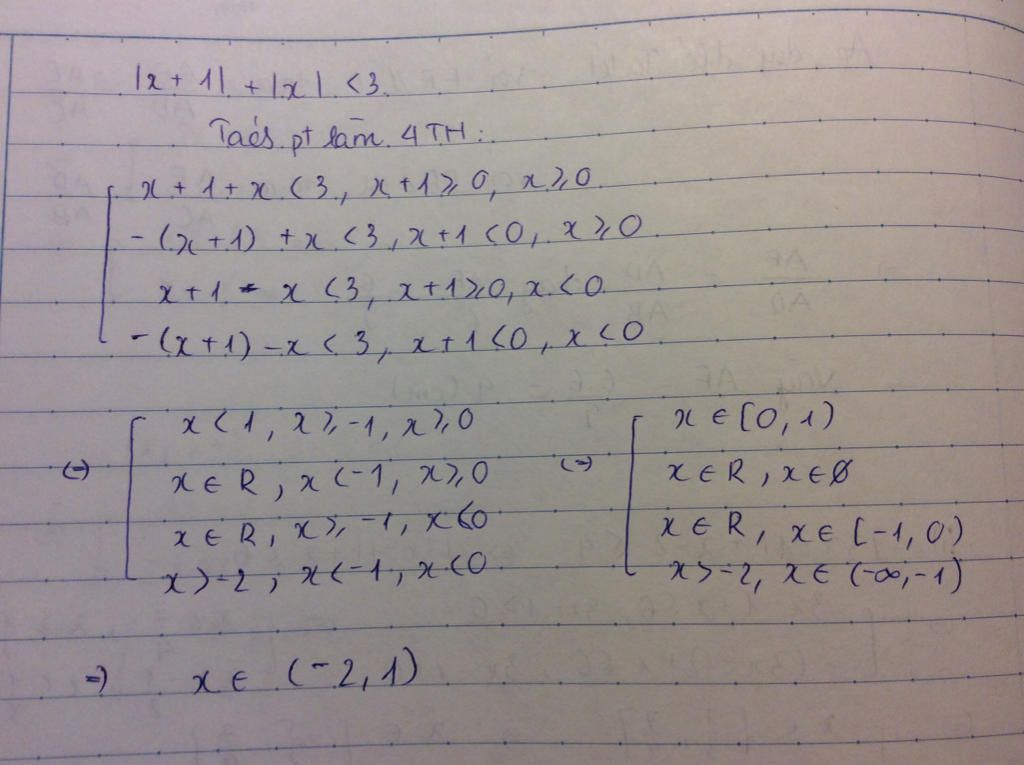 |x + 1| + |x| < 3
Tách pt làm 4 TH:
x + 1 + x < 3, x + 1 ⩾ 0, x ⩾ 0
-(x + 1) + x < 3, x + 1 < 0, x ⩾ 0
x + 1 - x < 3, x + 1 ⩾ 0, x < 0
-(x + 1) - x < 3, x + 1 < 0, x < 0
x < 1, x ⩾ -1, x ⩾ 0
(=) x ∈ R, x < -1, x ⩾ 0
x ∈ R, x ⩾ -1, x < 0
x > -2, x < -1, x < 0
x ∈ [0, 1)
(=) x ∈ R, x ∈ Ø
x ∈ R, x ∈ [-1, 0)
x > -2, x ∈ (-∞, -1)
=) x ∈ (-2, 1)